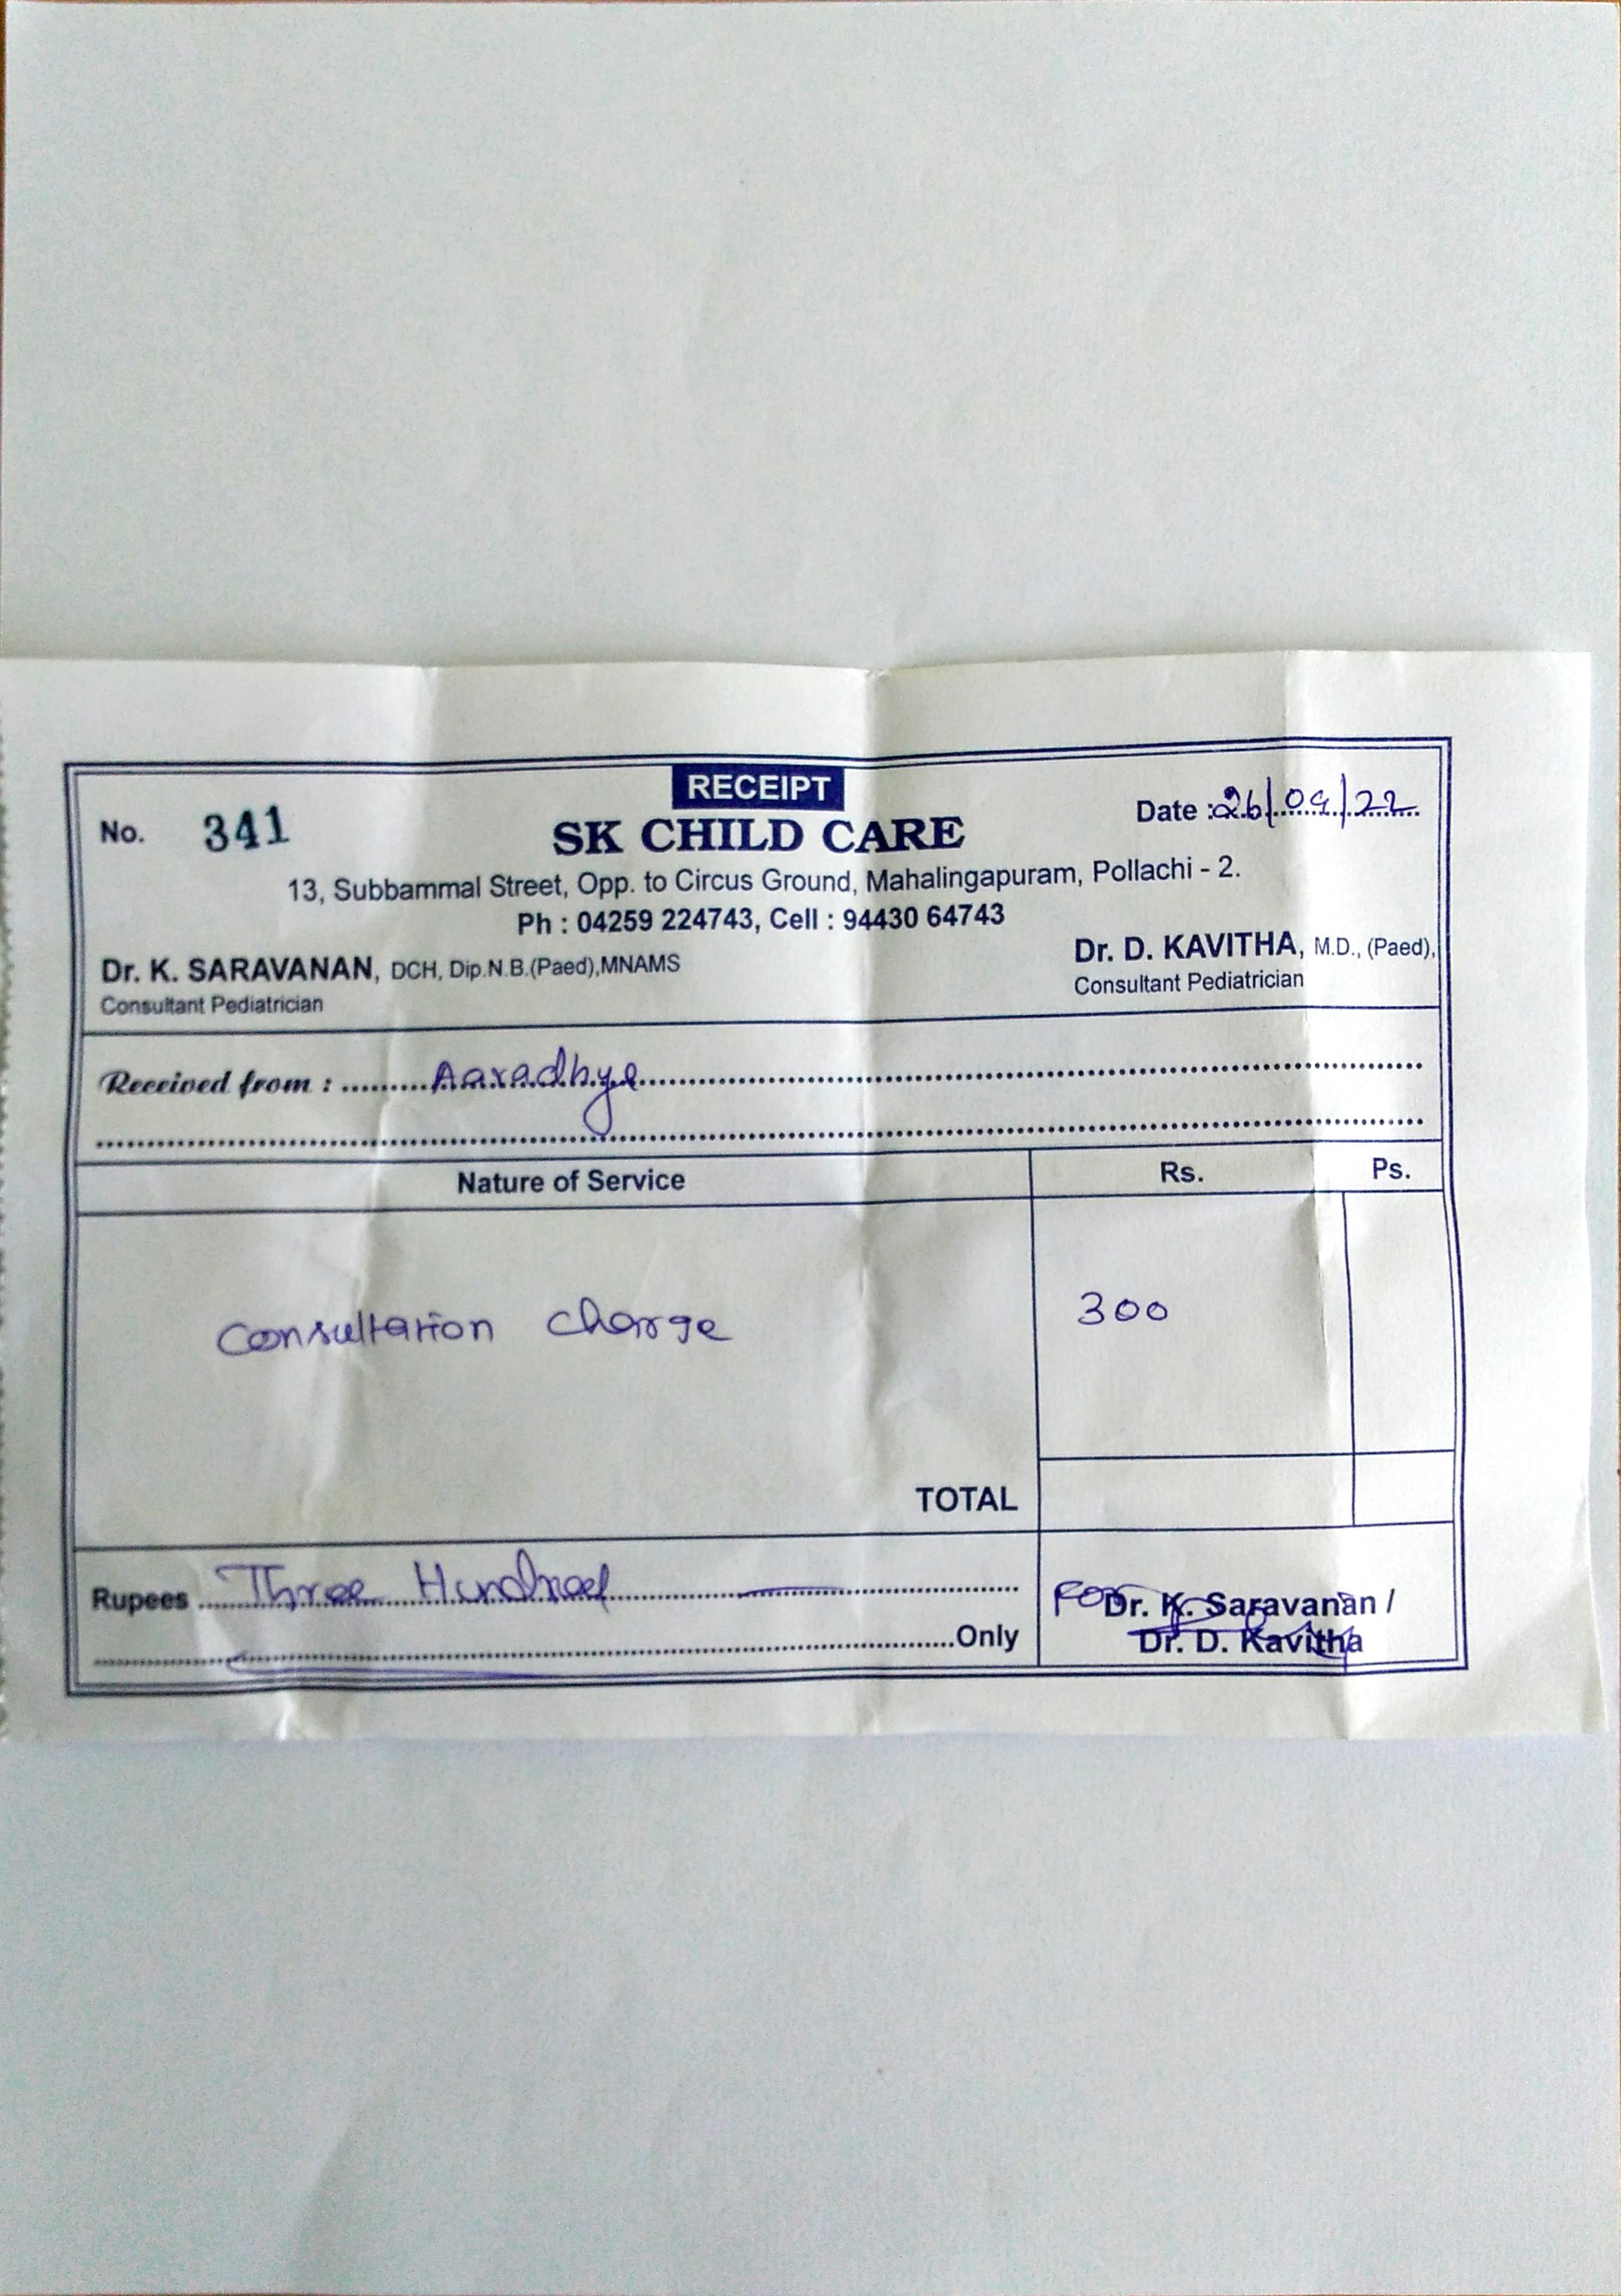 RECEIPT
No. 341
Date : 26/09/22
SK CHILD CARE
13, Subbammal Street, Opp. to Circus Ground, Mahalingapuram, Pollachi - 2.
Ph : 04259 224743, Cell : 94430 64743
Dr. K. SARAVANAN, DCH, Dip.N.B.(Paed),MNAMS
Consultant Pediatrician
Dr. D. KAVITHA, M.D., (Paed),
Consultant Pediatrician
Received from : Aaradhya
Nature of Service Rs. Ps.
Consultation charge 300
TOTAL
Rupees Three Hundred
Only
For Dr. K. Saravanan /
Dr. D. Kavitha